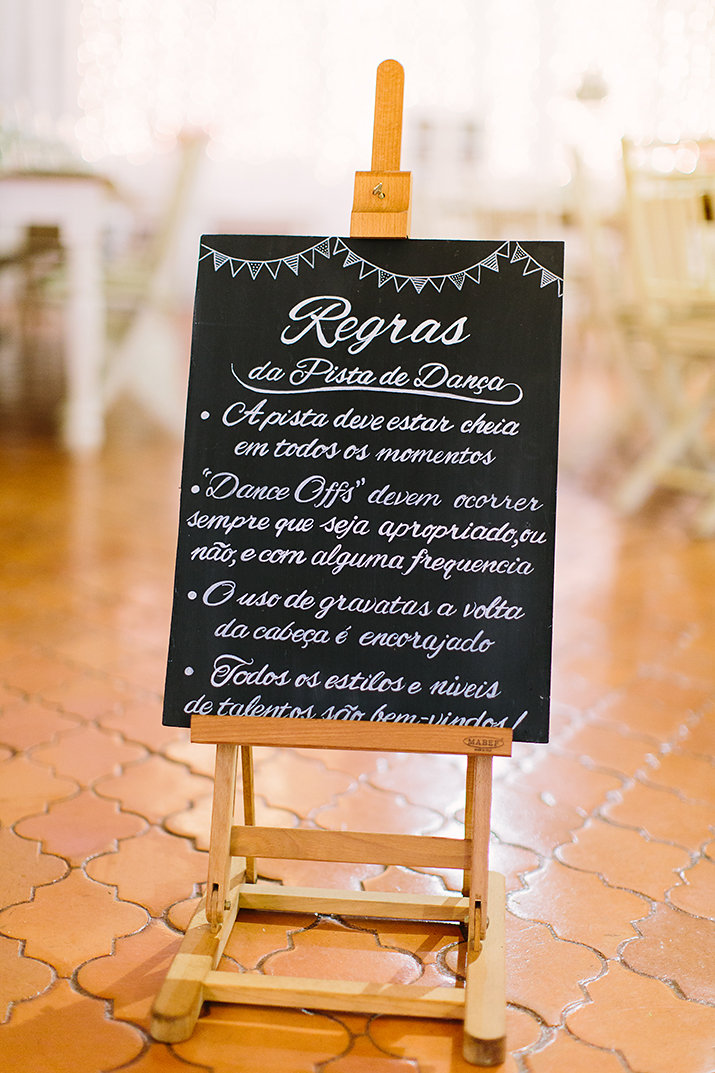 Regras
da Pista de Dança
• A pista deve estar cheia
em todos os momentos
• "Dance Offs" devem ocorrer
sempre que seja apropriado, ou
não, e com alguma frequencia
• O uso de gravatas a volta
da cabeça é encorajado
• Todos os estilos e niveis
de talentos são bem-vindos!
MABEF